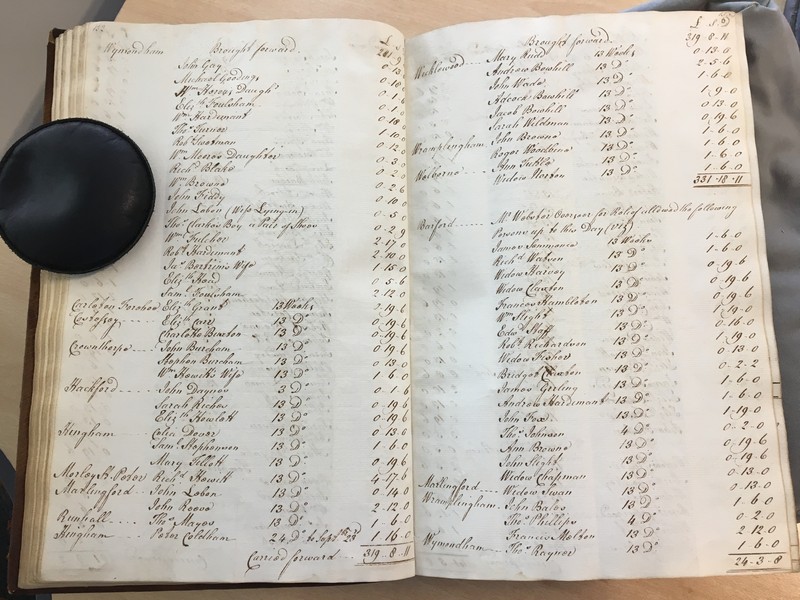 Wymondham Brought forward.
£ S
John Gay
Michael Goodings 0.13
Wm. Howes Daughr 0.10
Elizth Foulsham 0.1.6
Wm. Hardiment
Thos. Turner 0.18
Robt. Tooteman 1.10
Wm. Moores Daughter 0.12.0
Richd. Blake 0.3.0
Wm. Browne 0.2.0
John Fiddy 0.2.6
John Lebon (Wife Lying-in) 0.10
Thos. Clarkes Boy a Pair of Shoes 0.5.0
Wm. Fulcher 0.2.9
Robt. Hardiment 2.17.0
Jas. Bertrims Wife 2.10.0
Elizth Hoed 1.15.0
Saml. Foulsham 0.5.6
2.12.0
Carleton Forehoe Elizth Grant 13 Weeks 0.19.6
Costessey Elizth Card 13 Do. 0.19.6
Charlotte Buxton 13 Do. 0.19.6
Crownthorpe John Burcham 13 Do. 0.19.6
Stephen Burcham 13 Do. 0.13.0
Wm. Howitts Wife 13 Do. 1.6.0
Hackford John Daynes 3 Do. 0.1.6
Sarah Riches 13 Do. 0.19.6
Elizth Howlett 13 Do. 0.19.6
Hingham Celia Dower 13 Do. 0.13.0
Saml. Stephenson 13 Do. 1.6.0
Mary Tillett 13 Do. 0.19.6
Morley St. Peter Richd. Howitt 13 Do. 4.17.6
Marlingford John Lebon 13 Do. 0.14.0
John Reeve 13 Do. 2.12.0
Runhall Thos. Mayes 13 Do. 1.6.0
Hingham Peter Coldham 24 Do. to Septr. 23d 1.16.0
Carried forward 319.8.11
Brought forward £ S D
319.8.11
Wicklewood Mary Rudd 13 Weeks 0.13.0
Andrew Bowhill 13 Do. 2.5.6
John Wade 13 Do. 1.6.0
Adcock Bowhill 13 Do. 1.9.0
Jacob Bowhill 13 Do. 0.13.0
Sarah Wildeman 13 Do. 0.19.6
Wramplingham John Browne 13 Do. 1.6.0
Roger Woodbine 13 Do. 1.6.0
Welborne Ann Tuttle 13 Do. 1.6.0
Widow Norton 13 Do. 1.6.0
331.18.11
Barford Mr. Webster Overseer for Relief allowed the following
Persons up to this Day (vizt)
James Simmonce 13 Weeks 1.6.0
Richd. Watson 13 Do. 1.6.0
Widow Harvey 13 Do. 0.19.6
Widow Clawton 13 Do. 0.19.6
Frances Hambleton 13 Do. 0.19.6
Wm. Slight 13 Do. 1.19.0
Edwd. Staff 13 Do. 0.16.0
Robt. Richardson 13 Do. 1.19.0
Widow Fisher 13 Do. 0.13.0
Bridget Clawton 13 Do. 0.2.2
James Girling 13 Do. 1.6.0
Andrew Hardiment 13 Do. 1.6.0
John Fox 13 Do. 1.19.0
Thos. Johnson 4 Do. 0.2.0
Ann Browne 13 Do. 0.19.6
John Slight 13 Do. 0.19.6
Widow Chapman 13 Do. 0.13.0
Marlingford Widow Swan 13 Do. 0.13.0
Wramplingham John Bales 13 Do. 1.6.0
Thos. Phillips 4 Do. 0.2.0
Francis Melton 13 Do. 2.12.0
Wymondham Thos. Raynor 13 Do. 1.6.0
24.3.8